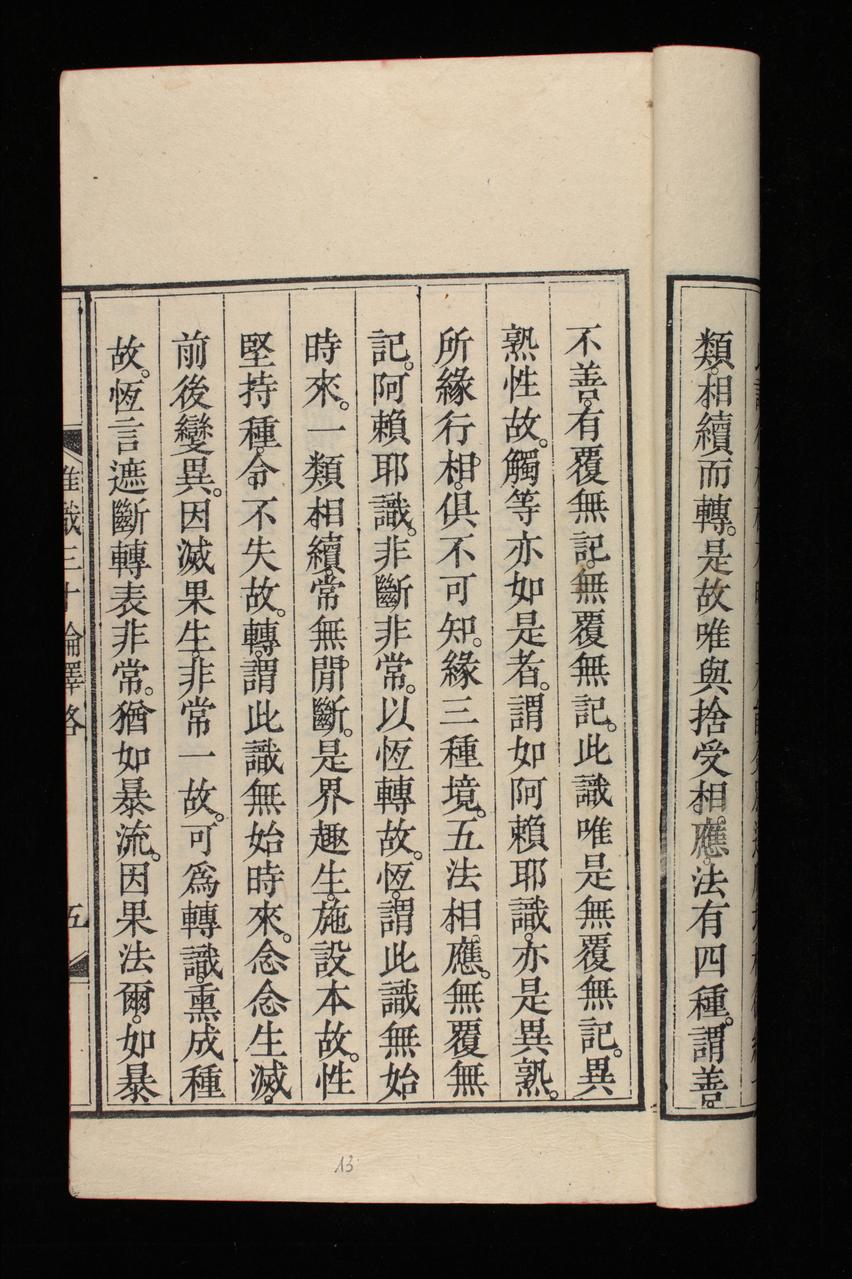 類。相續而轉。是故唯與捨受相。應。法有四種。謂善。
不善。有覆無記。無覆無記。此識唯是無覆無記。異
熟性故。觸等亦如是者。謂如阿賴耶識。亦是異熟。
所緣行相。俱不可知。緣三種境。五法相應。無覆無
記。阿賴耶識。非斷非常。以恆轉故。恆。謂此識無始
時來。一類相續。常無閒斷。是界趣生。施設本故。性
堅持種。令不失故。轉。謂此識無始時來。念念生滅。
前後變異。因滅果生。非常一故。可爲轉識。熏成種
故。恆言遮斷。轉表非常。猶如暴流。因果法爾。如暴
唯識三十論釋略 五
13